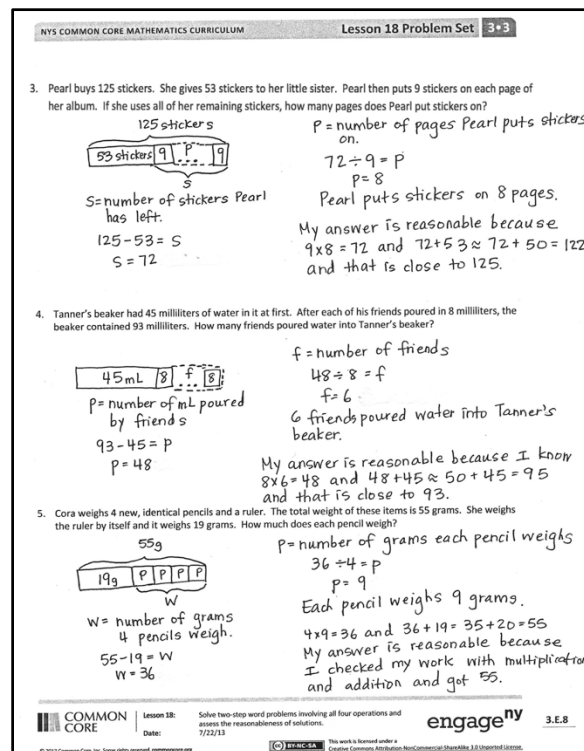 NYS COMMON CORE MATHEMATICS CURRICULUM
Lesson 18 Problem Set 3•3
3. Pearl buys 125 stickers. She gives 53 stickers to her little sister. Pearl then puts 9 stickers on each page of
her album. If she uses all of her remaining stickers, how many pages does Pearl put stickers on?
125 stickers
53 stickers 9 P ... 9
S
S=number of stickers Pearl
has left.
125-53 = S
S = 72
P = number of pages Pearl puts stickers
on.
72÷9 = P
P= 8
Pearl puts stickers on 8 pages.
My answer is reasonable because
9x8 = 72 and 72+53 ≈ 72+50 = 122
and that is close to 125.
4. Tanner's beaker had 45 milliliters of water in it at first. After each of his friends poured in 8 milliliters, the
beaker contained 93 milliliters. How many friends poured water into Tanner's beaker?
45mL 8 f ... 8
P= number of mL poured
by friends
93-45 = P
P = 48
f = number of friends
48÷8 = f
f= 6
6 friends poured water into Tanner's
beaker.
My answer is reasonable because I know
8x6=48 and 48+45 ≈ 50+45 = 95
and that is close to 93.
5. Cora weighs 4 new, identical pencils and a ruler. The total weight of these items is 55 grams. She weighs
the ruler by itself and it weighs 19 grams. How much does each pencil weigh?
55g
19g P P P P
W
W= number of grams
4 pencils weigh.
55-19 = W
W = 36
P= number of grams each pencil weighs
36 ÷4 = P
p= 9
Each pencil weighs 9 grams.
4x9=36 and 36+19= 35+20=55
My answer is reasonable because
I checked my work with multiplication
and addition and got 55.
COMMON
CORE
Lesson 18:
Date:
Solve two-step word problems involving all four operations and
assess the reasonableness of solutions.
7/22/13
engage ny
3.E.8
© 2013 Common Core, Inc. Some rights reserved. commoncore.org
CC BY-NC-SA
This work is licensed under a
Creative Commons Attribution-NonCommercial-ShareAlike 3.0 Unported License.